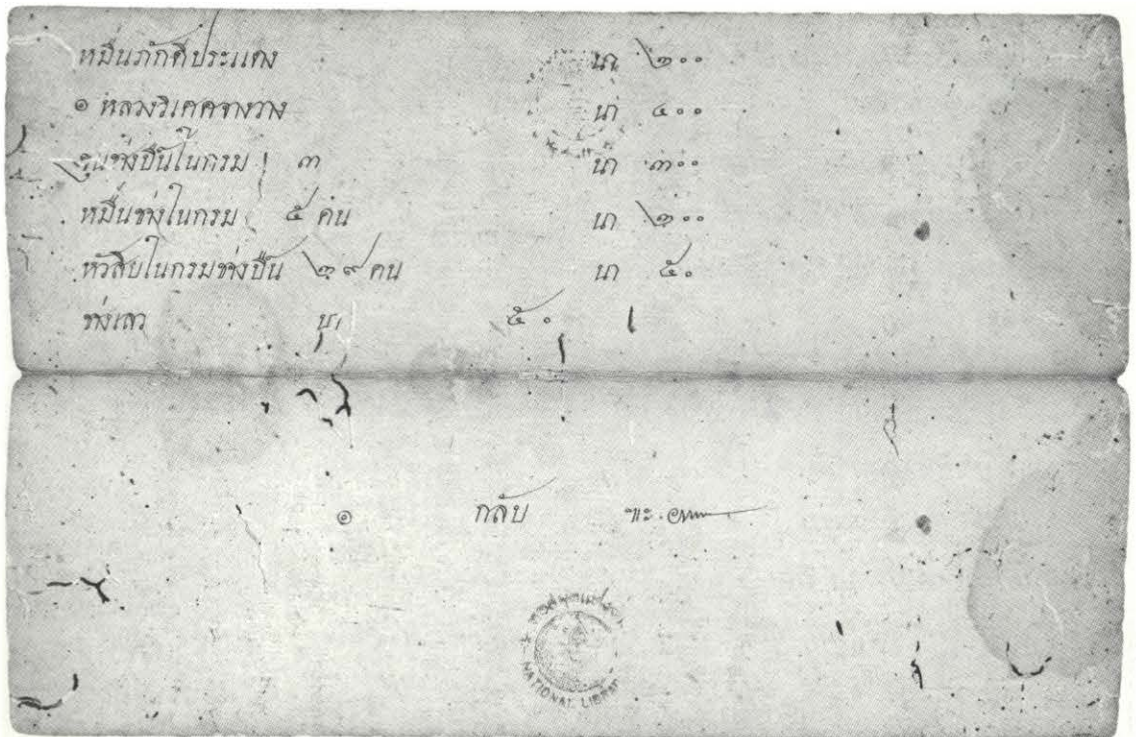 หมื่นภักดีประแดง นา ๒๐๐
๏ หลวงวิเศศจางวาง นา ๔๐๐
ขุนช่างปืนในกรม ๓ นา ๓๐๐
หมื่นช่างในกรม ๕ คน นา ๒๐๐
หัวสิบในกรมช่างปืน ๒๙ คน นา ๕๐
ช่างเลว ๕๐
๏ กลับ
NATIONAL LIBRARY